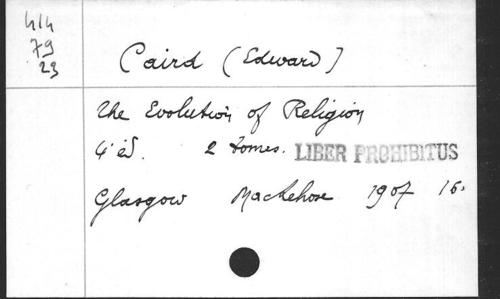 414
79
23
Caird (Edward)
The Evolution of Religion
4 éd. 2 tomes. LIBER PROHIBITUS
Glasgow MacLehose 1907 16.